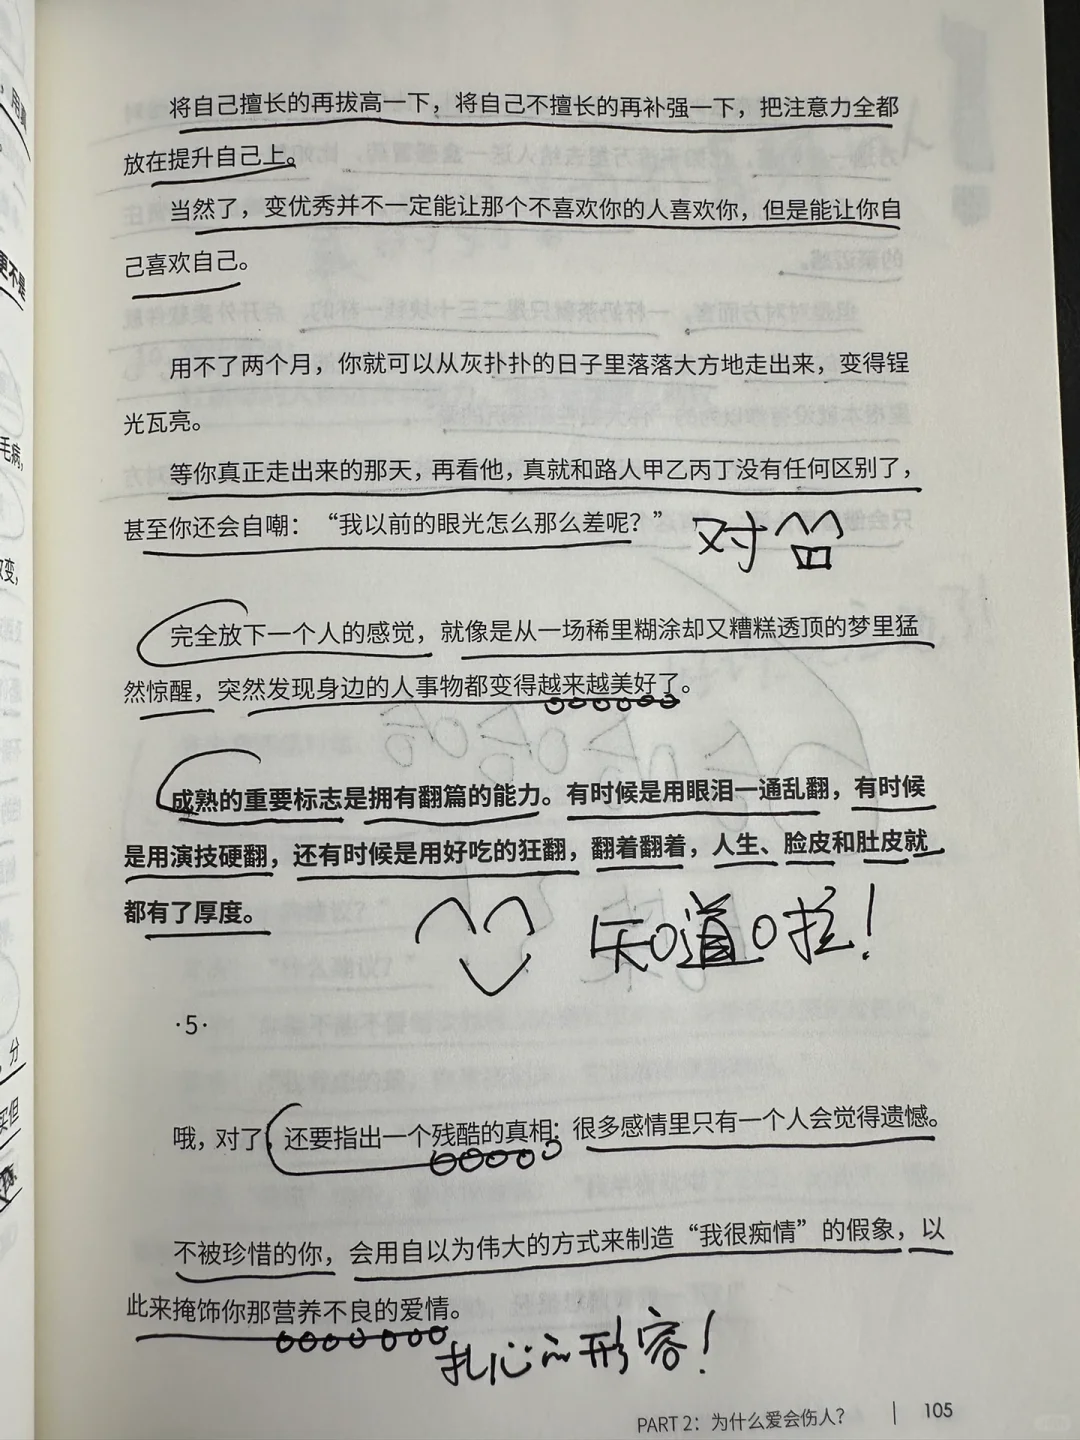 将自己擅长的再拔高一下，将自己不擅长的再补强一下，把注意力全都
放在提升自己上。
当然了，变优秀并不一定能让那个不喜欢你的人喜欢你，但是能让你自
己喜欢自己。
用不了两个月，你就可以从灰扑扑的日子里落落大方地走出来，变得锃
光瓦亮。
等你真正走出来的那天，再看他，真就和路人甲乙丙丁没有任何区别了，
甚至你还会自嘲：“我以前的眼光怎么那么差呢？”
对
完全放下一个人的感觉，就像是从一场稀里糊涂却又糟糕透顶的梦里猛
然惊醒，突然发现身边的人事物都变得越来越美好了。
成熟的重要标志是拥有翻篇的能力。有时候是用眼泪一通乱翻，有时候
是用演技硬翻，还有时候是用好吃的狂翻，翻着翻着，人生、脸皮和肚皮就
都有了厚度。
知道啦！
·5·
哦，对了，还要指出一个残酷的真相：很多感情里只有一个人会觉得遗憾。
不被珍惜的你，会用自以为伟大的方式来制造“我很痴情”的假象，以
此来掩饰你那营养不良的爱情。
扎心的形容！
PART 2：为什么爱会伤人？ | 105